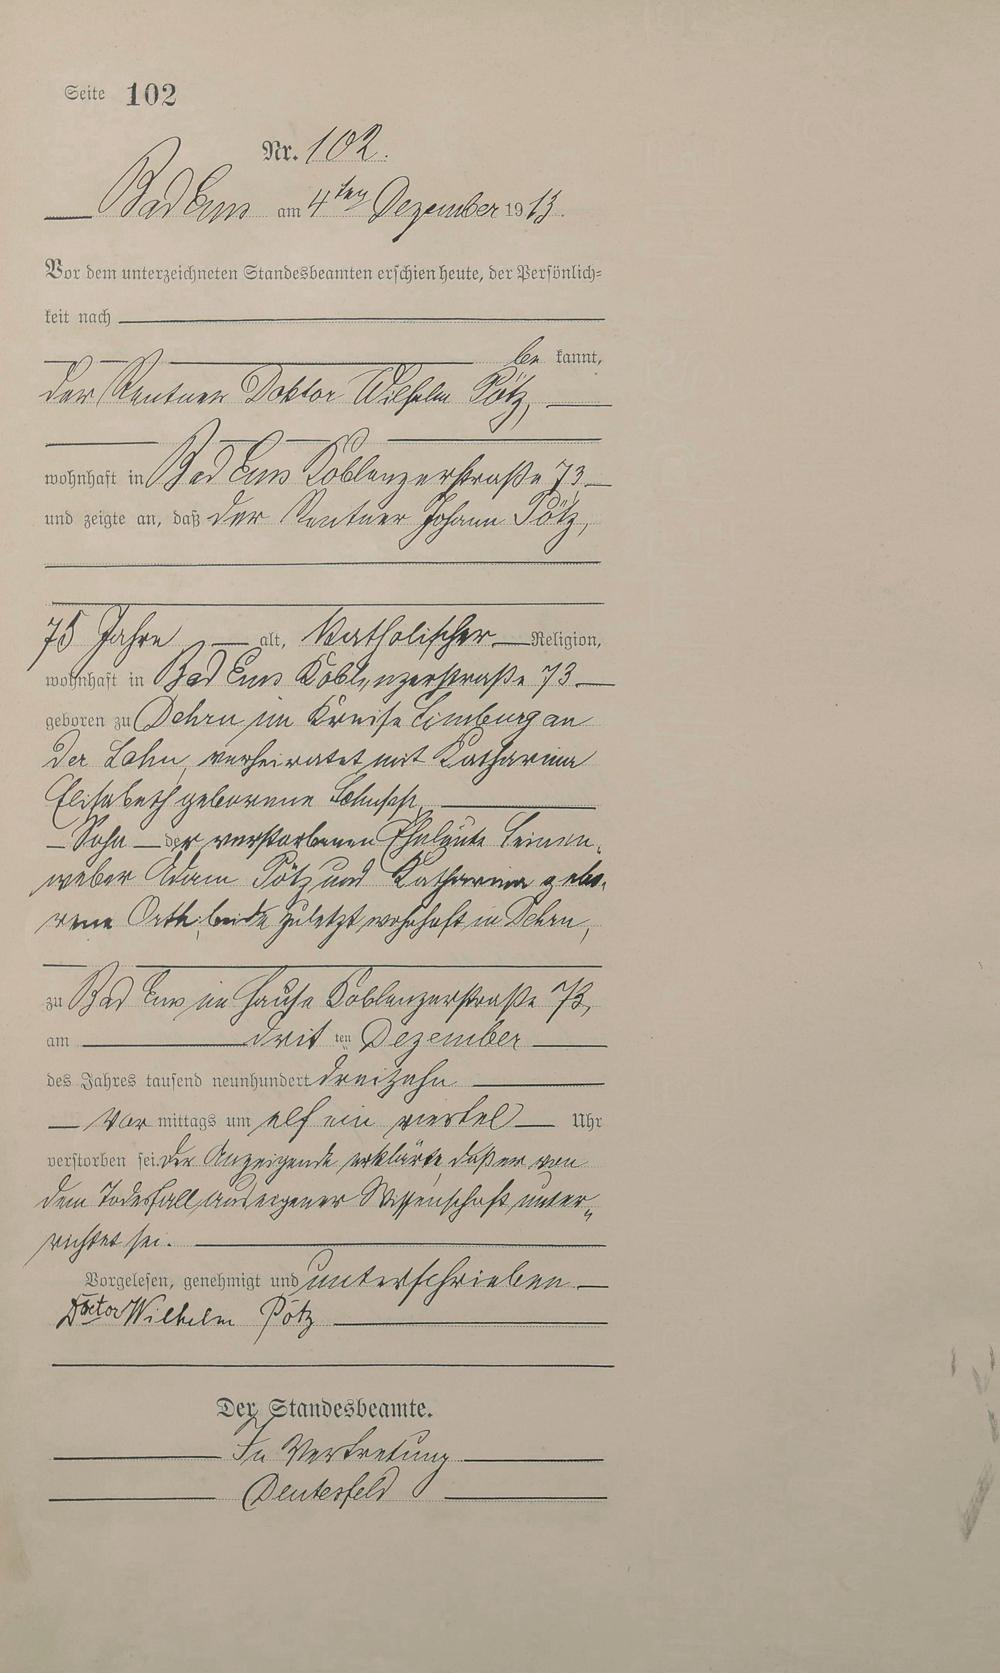 Seite 102
Nr. 102.
Bad Ems am 4ten Dezember 1913.
Vor dem unterzeichneten Standesbeamten erschien heute, der Persönlich=
keit nach
be kannt,
der Rentner Doktor Wilhelm Pötz,
wohnhaft in Bad Ems Koblenzerstraße 73
und zeigte an, daß der Rentner Johann Pötz,
75 Jahre alt, Katholischer Religion,
wohnhaft in Bad Ems Koblenzerstraße 73
geboren zu Dehrn im Kreise Limburg an
der Lahn, verheiratet mit Katharina
Elisabeth geborene
Sohn der verstorbenen Eheleute Leinen-
weber Adam Pötz und Katharina gebo-
rene Orth, beide zuletzt wohnhaft in Dehrn,
zu Bad Ems im Hause Koblenzerstraße 73,
am dritten Dezember
des Jahres tausend neunhundert dreizehn
Vor mittags um elf ein viertel Uhr
verstorben sei. Der Anzeigende erklärte, daß er von
dem Todesfall aus eigener Wissenschaft unter„
richtet sei.
Vorgelesen, genehmigt und unterschrieben
Doctor Wilhelm Pötz
Der Standesbeamte.
In Vertretung